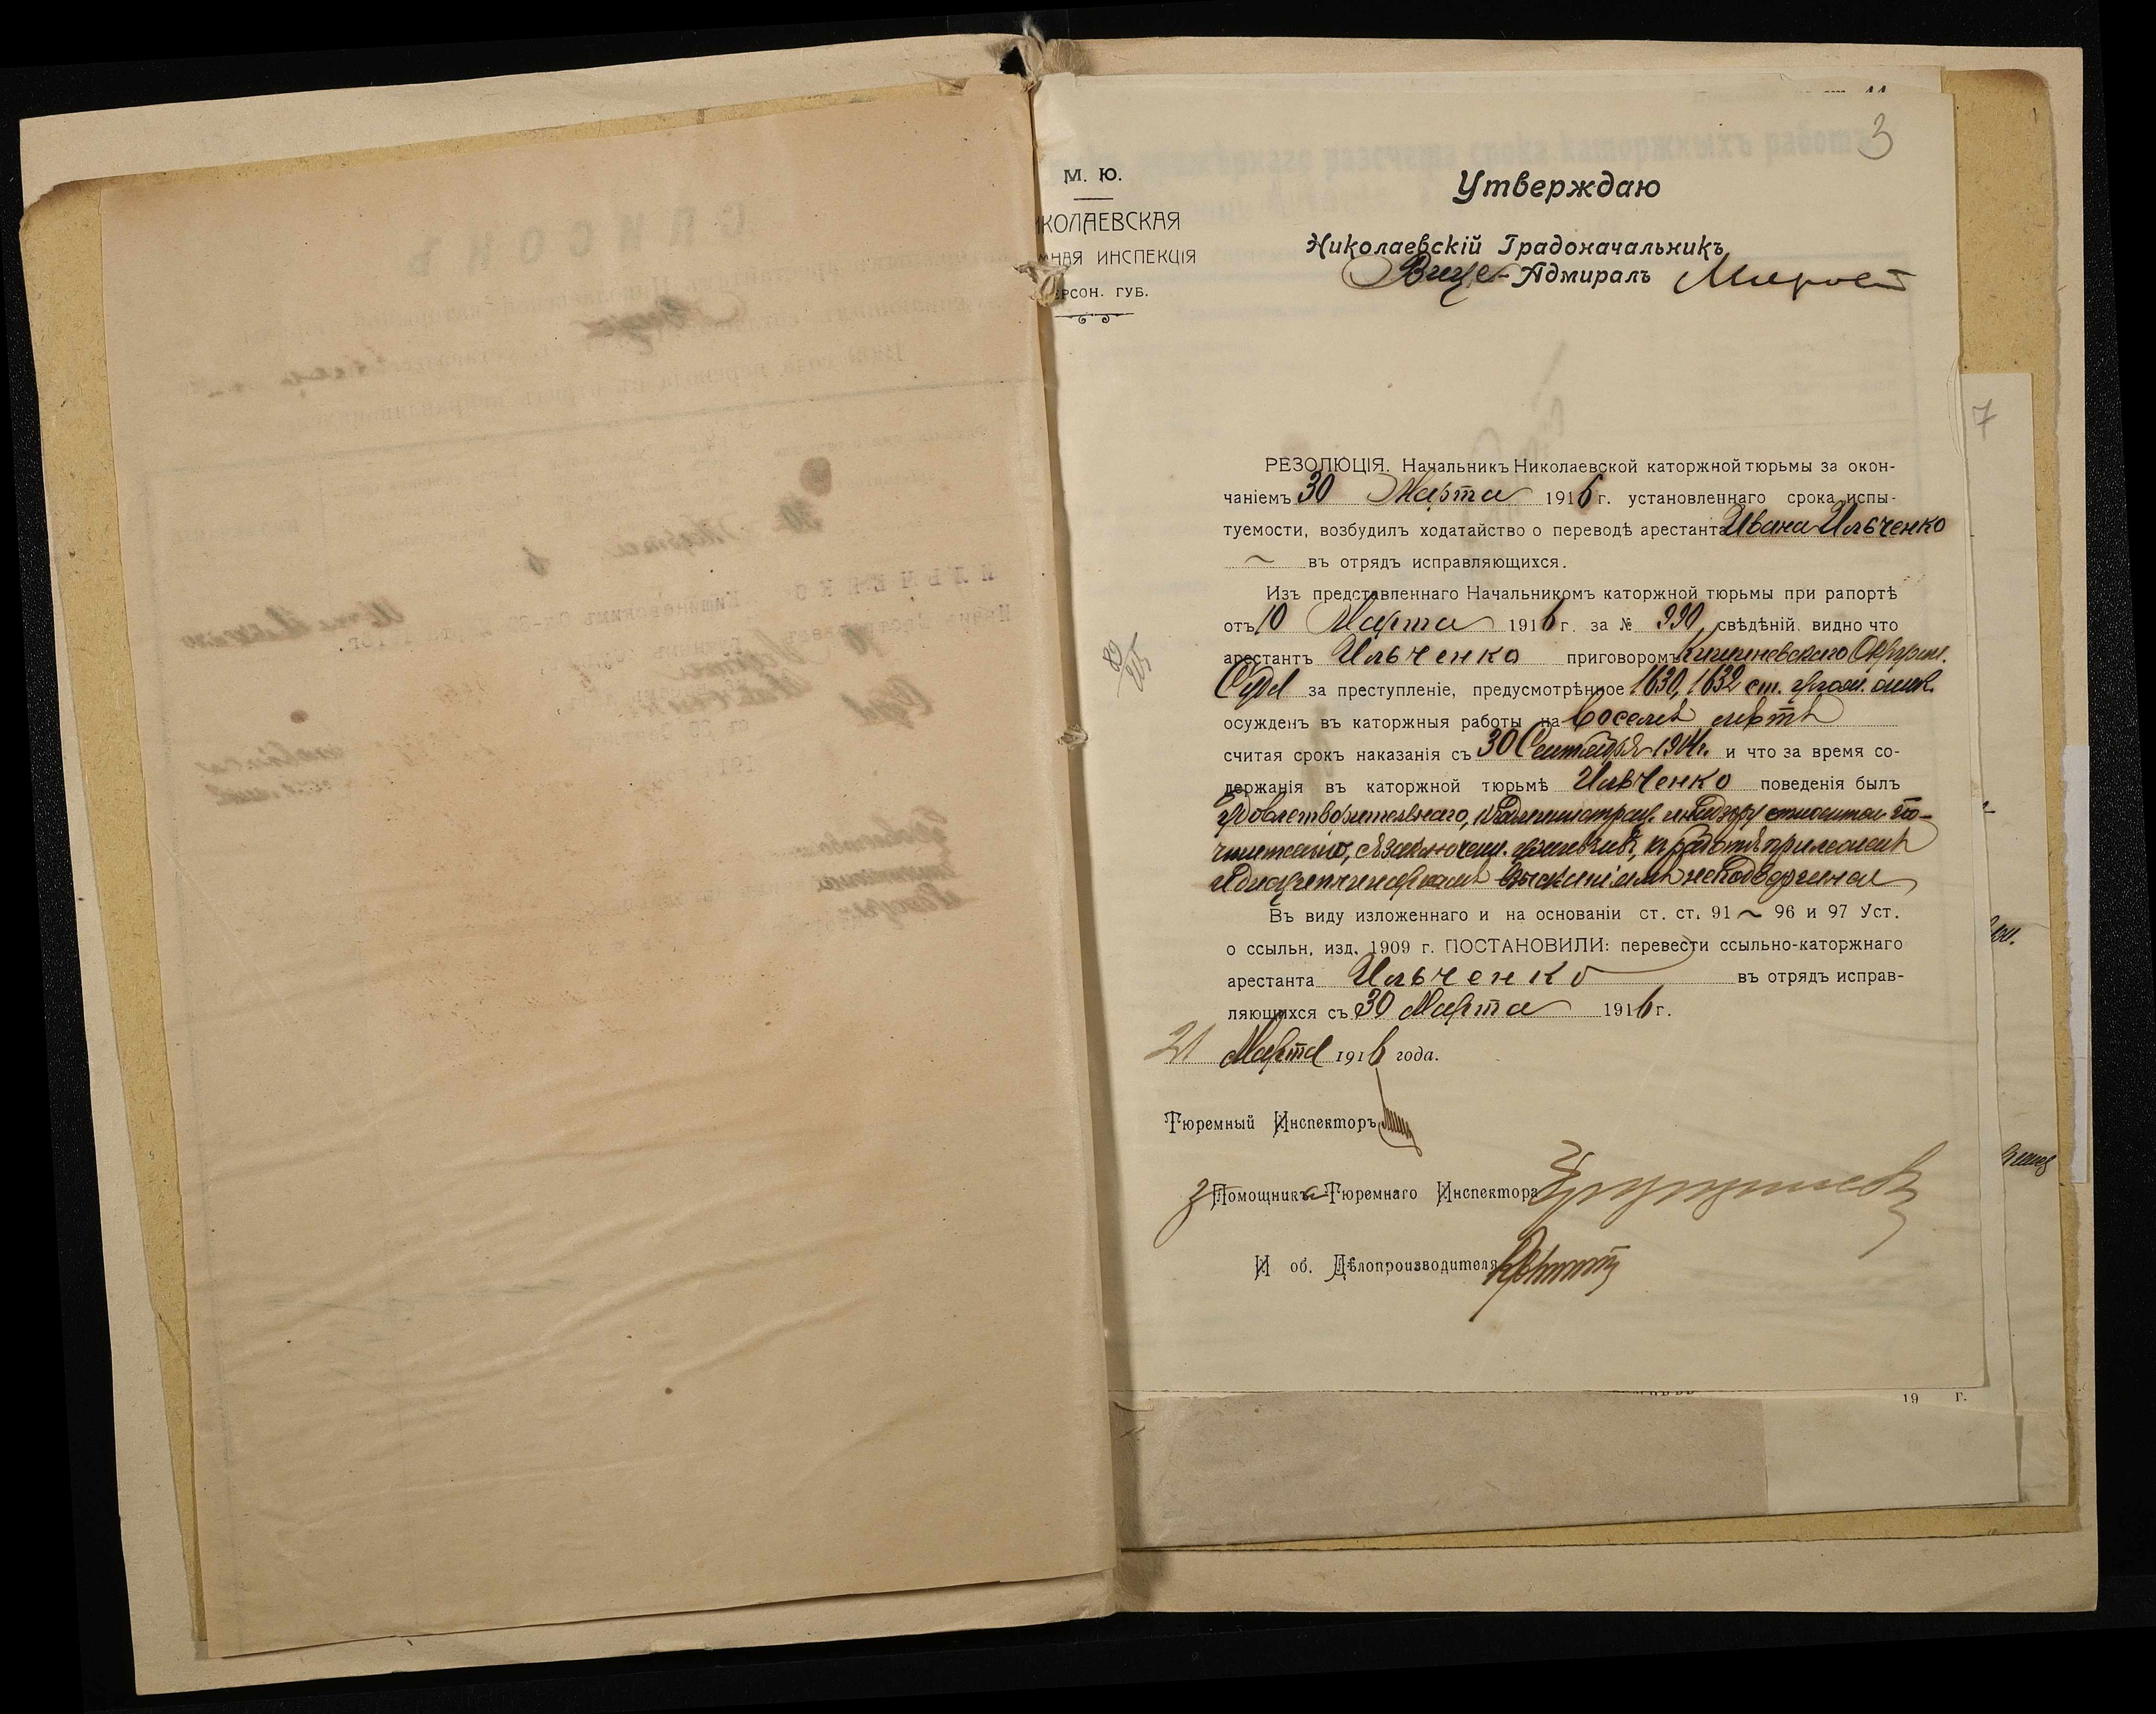 3
М. Ю.
КОЛАЕВСКАЯ
НАЯ ИНСПЕКЦІЯ
РСОН. ГУБ.
Утверждаю
Николаевскій Градоначальникъ
Вице-Адмиралъ
7
РЕЗОЛЮЦІЯ. Начальникъ Николаевской каторжной тюрьмы за окон-
чаніемъ 30 Марта 1916 г. установленнаго срока испы-
туемости, возбудилъ ходатайство о переводѣ арестанта Ивана Ильченко
въ отрядъ исправляющихся.
Изъ представленнаго Начальникомъ каторжной тюрьмы при рапортѣ
отъ 10 Марта 1916 г. за № 990, свѣдѣній видно что
арестантъ Ильченко приговоромъ Кишиневскаго Окружн.
Суда за преступленіе, предусмотрѣнное 1630, 1632 ст. улож. о нак.
осужденъ въ каторжныя работы на восемь лѣтъ
считая срокъ наказанія съ 30 Сентября 1914г. и что за время со-
держанія въ каторжной тюрьмѣ Ильченко поведенія былъ
удовлетворительнаго, къ администрац. и надзору относится по-
чтительно, съ заключен. уживчивъ, къ работѣ прилеженъ
и дисциплинарнымъ взысканіямъ не подвергался
Въ виду изложеннаго и на основаніи ст. ст. 91 ~ 96 и 97 Уст.
о ссыльн, изд. 1909 г. ПОСТАНОВИЛИ: перевести ссыльно-каторжнаго
арестанта Ильченко въ отрядъ исправ-
ляющихся съ 30 Марта 1916 г.
21 Марта 1916 года.
Тюремный Инспекторъ
З Помощника Тюремнаго Инспектора
И об. Дѣлопроизводителя
19 г.